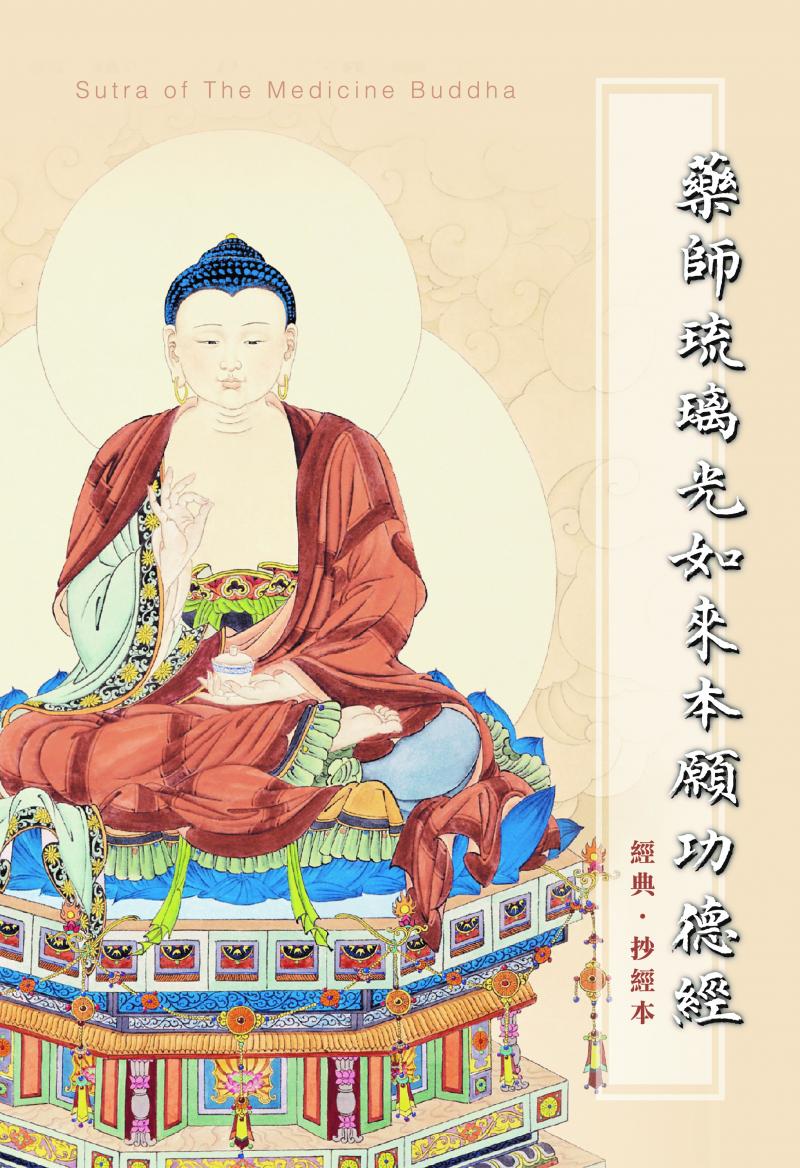 Sutra of The Medicine Buddha
藥師琉璃光如來本願功德經
經典·抄經本